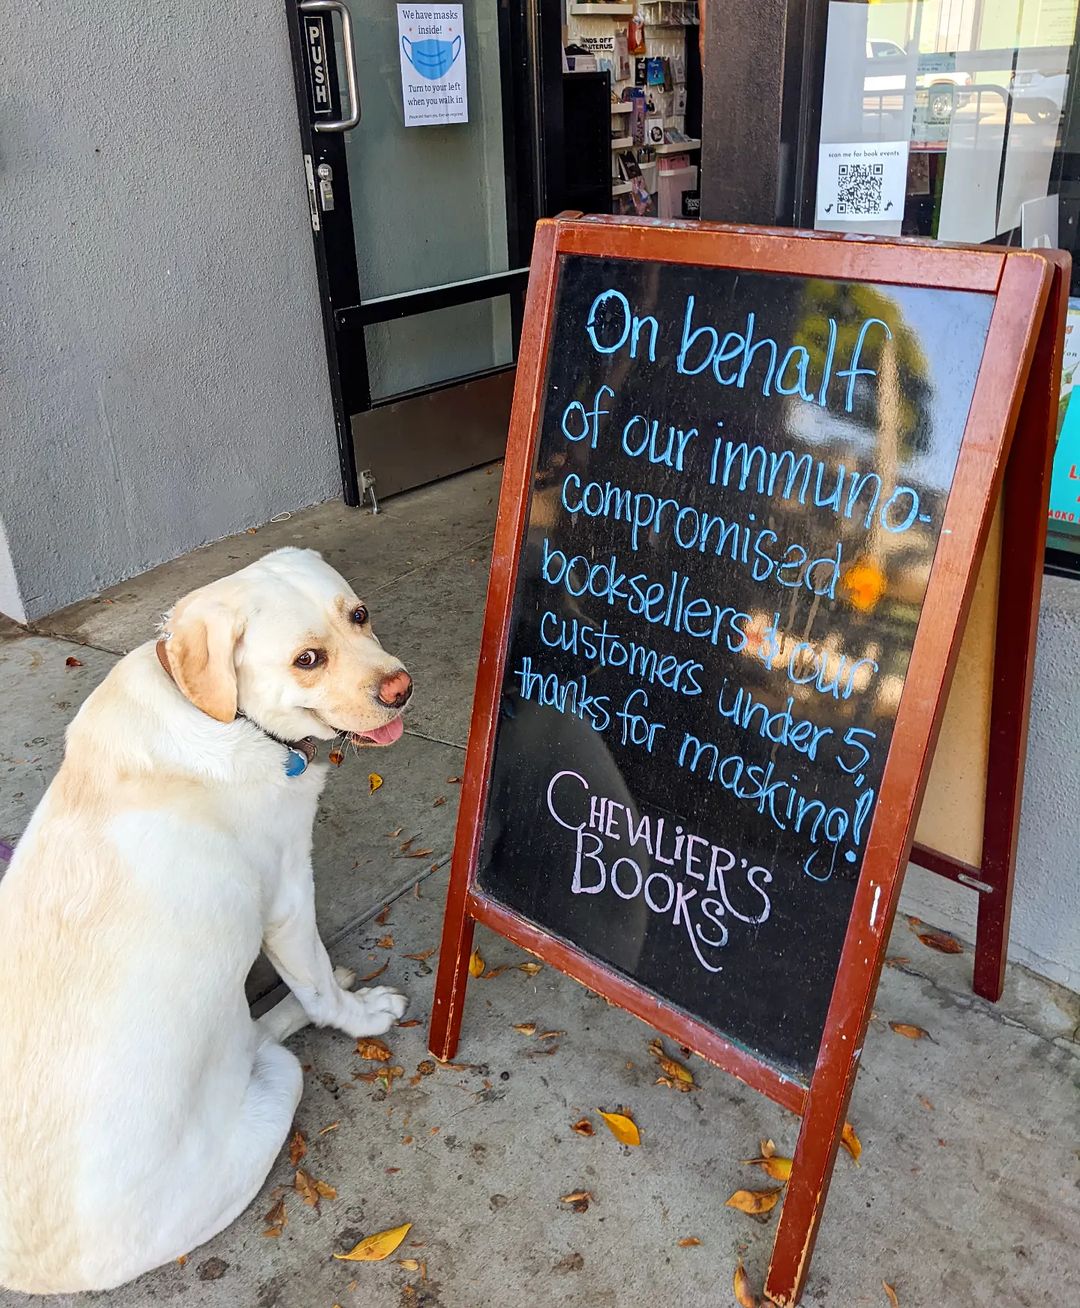 PUSH
We have masks
inside!
Turn to your left
when you walk in
scan me for book events
On behalf
of our immuno-
compromised
booksellers & our
customers under 5,
thanks for masking!
CHEVALiER'S
BOOKS